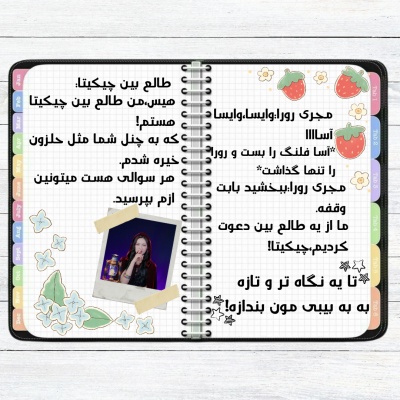 مجری رورا:وایسا،وایسا
آساااا
*آسا فلنگ را بست و رورا
را تنها گذاشت*
مجری رورا:ببخشید بابت
وقفه.
ما از یه طالع بین دعوت
کردیم,چیکیتا!
تا یه نگاه تر و تازه
به یه بیبی مون بندازه!
طالع بین چیکیتا:
هیس,من طالع بین چیکیتا
هستم!
که به چنل شما مثل حلزون
خیره شدم.
هر سوالی هست میتونین
ازم بپرسید.